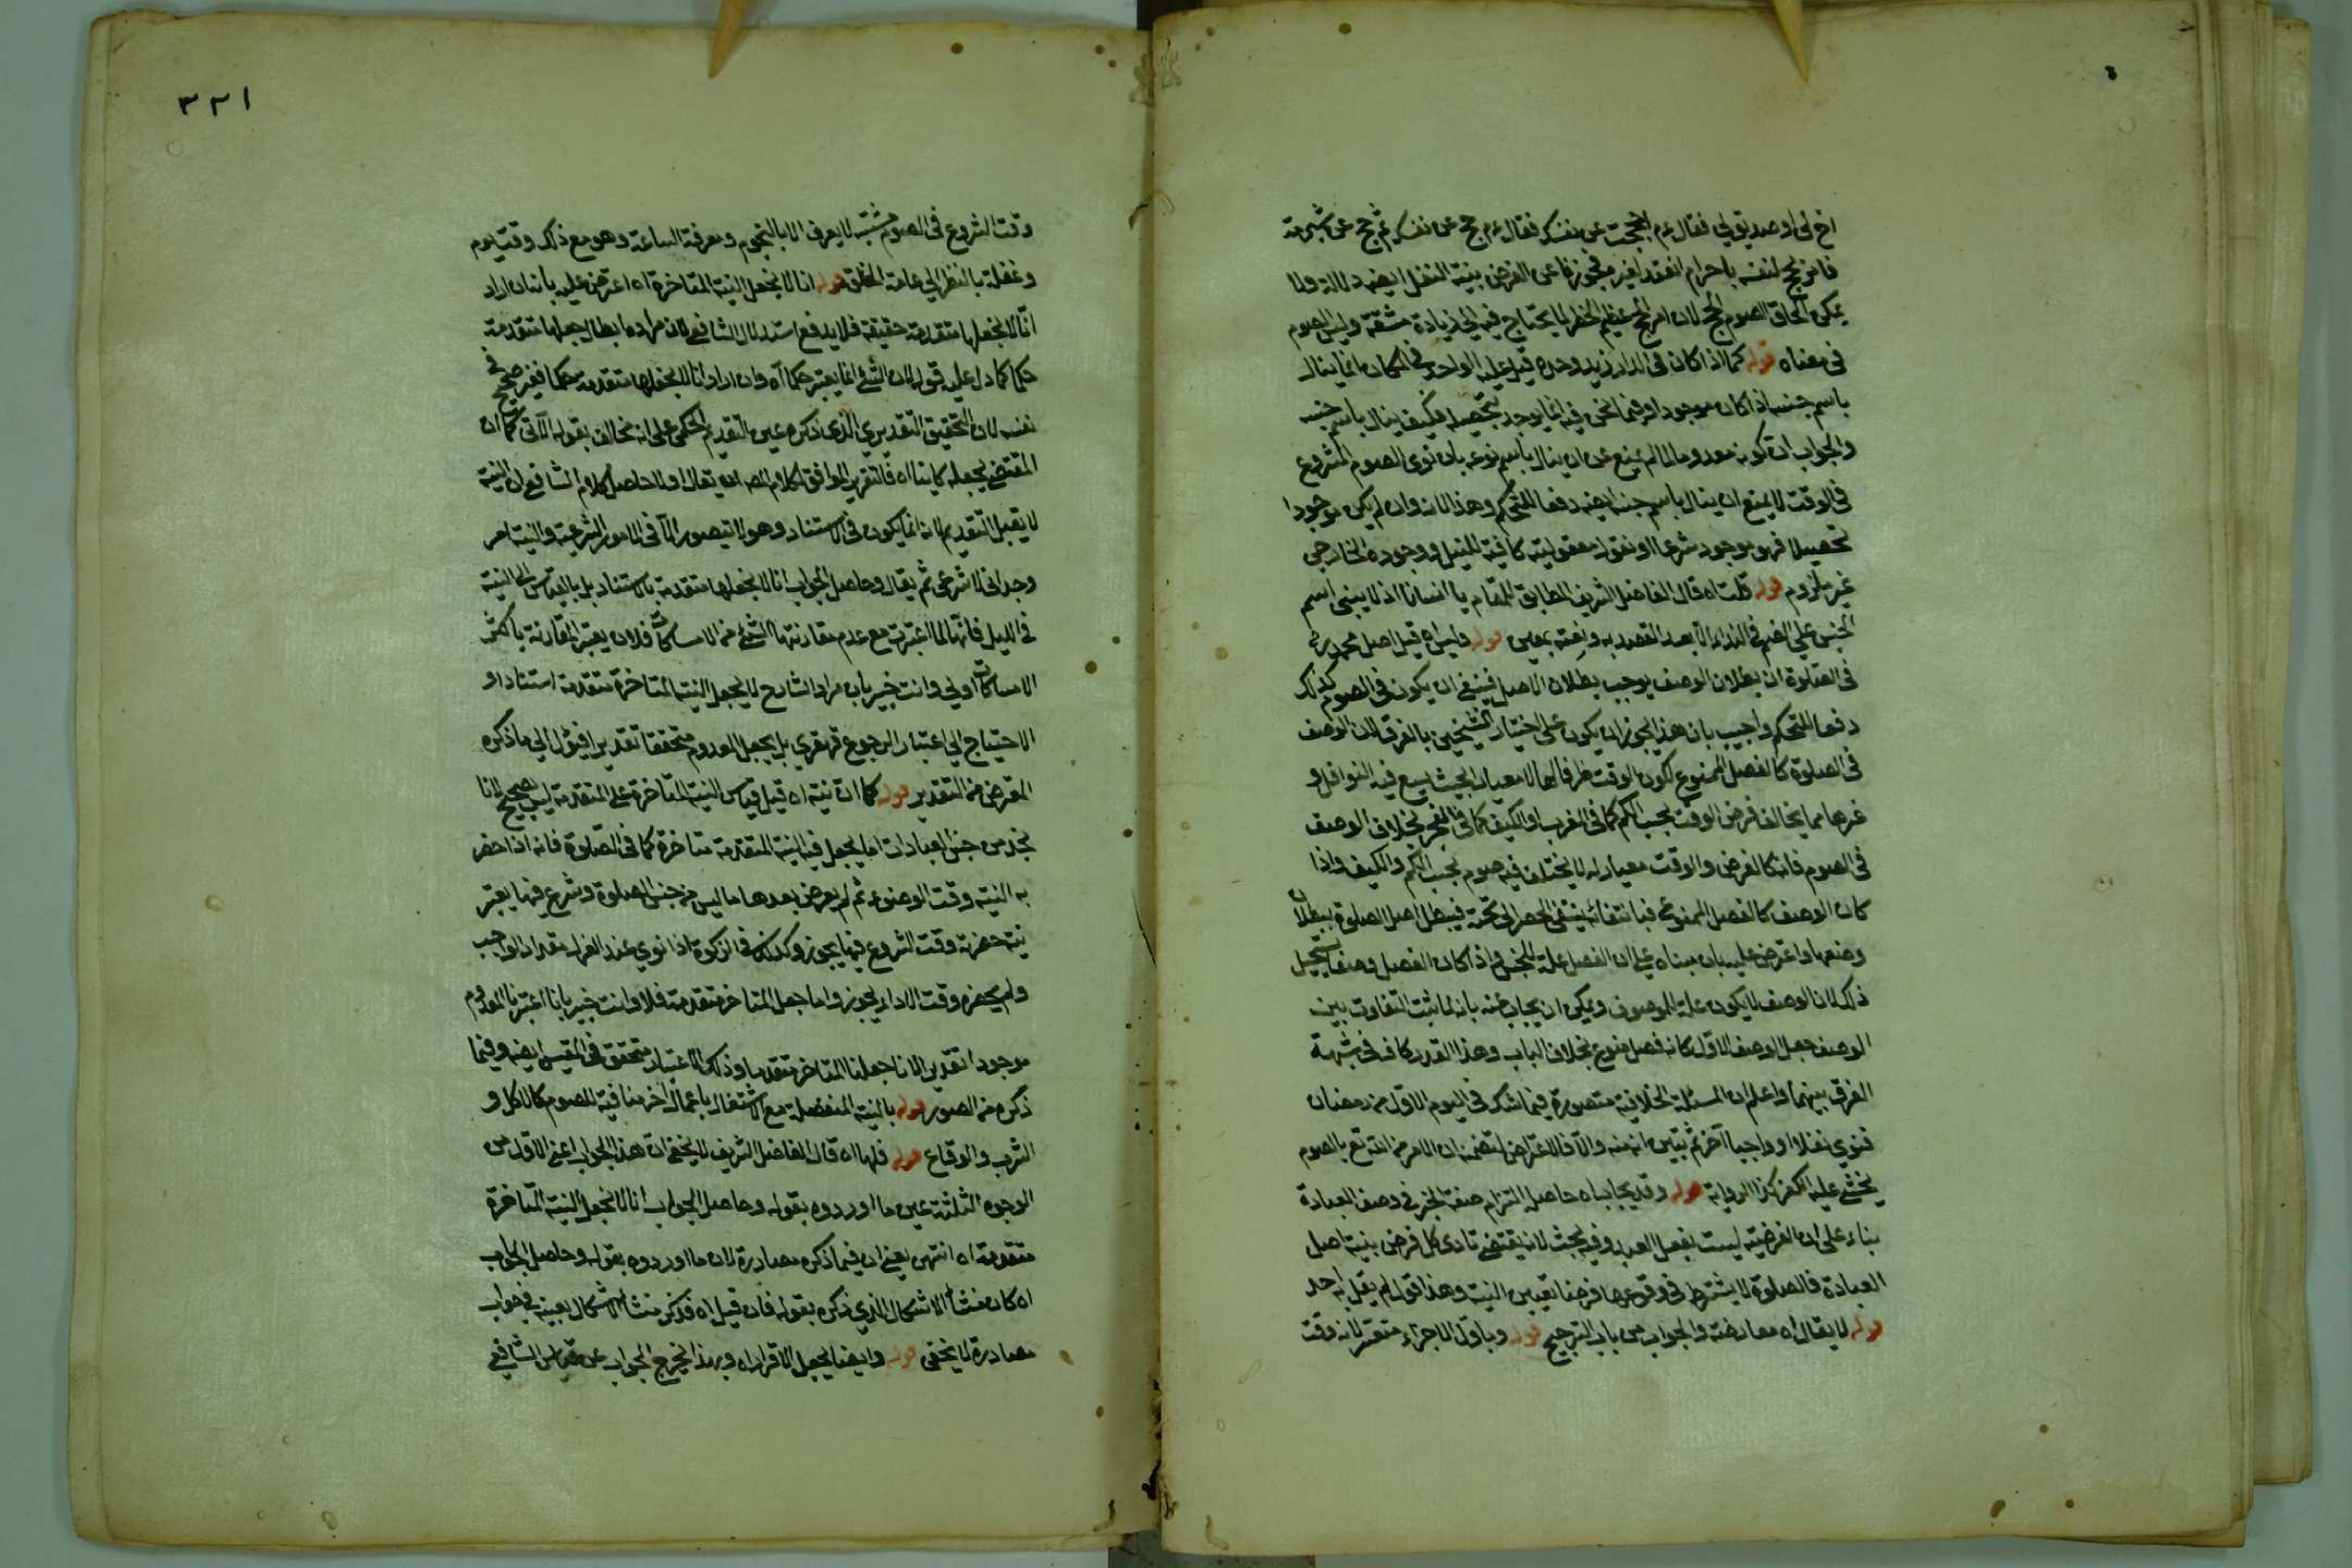 اخ لى او صديق لى فقال ءم احججت عن نفسك فقال ءم حج عن نفسك ثم حج عن شبرمة
فانه يحج لنفسه باحرام انعقد لغيره فجوز ها عن الفرض بنية النفل ايضه دلالة ولا
يمكن الحاق الصوم بالحج لان امر الحج عظيم الخطر لما يحتاج فيه الى زيادة مشقة وليس الصوم
فى معناه قوله كما اذا كان فى الدار زيد وحده قيل عليه الواحد فى المكان انما ينال
باسم جنسه اذا كان موجودا وفيما نحن فيه انما يوجد بتحصيله فكيف ينال باسم جنسه
والجواب ان كونه معدوما لما لم يمنع عن ان ينال باسم نوعه بان نوى الصوم المشروع
فى الوقت لا يمنع ان ينال باسم جنسه ايضه دفعا للتحكم وهذا لانه وان لم يكن موجودا
تحصيلا فهو موجود شرعا او نقول معقوليته كافية للنيل ووجوده الخارجى
غير ملزوم قوله قلت اه قال الفاضل الشريف المطابق للمقام يا انسانا اذ لا يبنى اسم
الجنس على الضم فى النداء الا بعد القصد به ونعته بمعين قوله وليس اه قيل اصل محمد رح
فى الصلوة ان بطلان الوصف يوجب بطلان الاصل فينبغى ان يكون فى الصوم كذلك
دفعا للتحكم واجيب بان هذا يجوز ان يكون على اختيار الشيخين بالفرق لان الوصف
فى الصلوة كالفصل المنوع لكون الوقت ظرفا لها لا معيارا بحيث يسع فيه النوافل و
غيرها مما يخالف فرض الوقت بحسب الكم كما فى المغرب او الكيف كما فى الفجر بخلاف الوصف
فى الصوم فانه كالعرض والوقت معيار له لا يختلف فيه صوم بحسب الكم والكيف واذا
كان الوصف كالفصل المنوع فبانتفائه ينتفى الحصة التى تحته فيبطل اصل الصلوة ببطلان
وصفها واعترض عليه بان مبناه على ان الفصل علة للجنس واذا كان الفصل وصفا يستحيل
ذلك لان الوصف لا يكون علة للموصوف ويمكن ان يجاب عنه بانه لما ثبت التفاوت بين
الوصف جعل الوصف الاول كانه فصل منوع بخلاف الباب وهذا القدر كاف فى شبهة
الفرق بينهما واعلم ان المسئلة الخلافية متصورة فيما شك فى اليوم الاول من رمضان
فنوى نفلا او واجبا آخر ثم تبين انه منه والا فالاعتراض لتضمنه ان الامر من الله تع بالصوم
يخشى عليه الكفر كذا الرواية قوله وقد يجاب اه حاصله التزام صفة الجبر فى وصف العبادة
بناء على ان الفرضية ليست بفعل العبد وفيه بحث لانه يقتضى تادى كل فرض بنية اصل
العبادة فالصلوة لا يشترط فى وقوعها فرضا تعيين النية وهذا قول لم يقل به احد
قوله لا يقال اه معارضة والجواب من باب الترجيح قوله وباول الاجزاء متعسر لانه وقت
٣٢١
وقت الشروع فى الصوم مشتبه لا يعرف الا بالنجوم ومعرفة الساعة وهو مع ذلك وقت نوم
وغفلة بالنظر الى عامة الخلق قوله انا لا نجعل النية المتاخرة اه اعترض عليه بانه ان اراد
انا لا نجعلها متقدمة حقيقة فلا يدفع استدلال الشافعى لان مراده ابطال جعلها متقدمة
حكما كما دل عليه قوله لان الشئ انما يعتبر حكما اه وان اراد انا لا نجعلها متقدمة حكما فغير صحيح فى
نفسه لان التحقيق التقديرى الذى ذكره عين التقديم الحكمى على انه مخالف بقوله الآتى كما ان
المقتضى يجعله كاينا اه فالتقرير الموافق لكلام المص ان يقال اولا حاصل كلام الشافعى ان النية
لا يقبل التقديم لانه انما يكون فى الاستناد وهو لا يتصور الا فى الامور الشرعية والنية امر
وجدانى لا شرعى ثم يقال وحاصل الجواب انا لا نجعلها متقدمة بالاستناد بل بالقياس الى النية
فى الليل فانها لما اعتبرت مع عدم مقارنتها لشئ من الامساكات فلان يعتبر المقارنة باكثر
الامساكات اولى وانت خبير بان مراد الشارح لا يجعل النية المتاخرة متقدمة استنادا و
الاحتياج الى اعتبار الرجوع قهقرى بل يجعل المعدوم متحققا تقديرا فيؤل الى ما ذكره
المعترض من التقدير قوله كما ان نية اه قيل قياس النية المتاخرة على المتقدمة ليس بصحيح لانا
نجد من جنس العبادات ما يجعل فيه النية المتقدمة متاخرة كما فى الصلوة فانه اذا حضر
به النية وقت الوضوء ثم لم يعرض بعدها ما ليس من جنس الصلوة وشرع فيها يعتبر
نية حضرته وقت الشروع فيها يجوز وكذلك فى الزكوة اذا نوى عند العزل مقدار الواجب
ولم يحضره وقت الاداء يجوز واما جعل المتاخر متقدمة فلا وانت خبير بانا اعتبرنا المعدوم
موجودا تقديرا لا انا جعلنا المتاخر متقدما وذلك الاعتبار متحقق فى المقيس ايضه وفيما
ذكره من الصور قوله بالنية المنفصلة مع الاشتغال باعمال اخر منافية للصوم كالاكل و
الشرب والوقاع قوله فلها اه قال الفاضل الشريف لا يخفى ان هذا الجواب اعنى الاول من
الوجوه الثلثة عين ما اورده بقوله وحاصل الجواب انا لا نجعل النية المتاخرة
متقدمة اه انتهى يعنى ان فيما ذكره مصادرة لان ما اورده بقوله وحاصل الجواب
اه كان منشأ الاشكال الذى ذكره بقوله فان قيل اه فذكر منشأ الاشكال بعينه فى جواب
مصادرة لا يخفى قوله وايضا يجعل الاقرار اه وبهذا يخرج الجواب عن قياس الشافعى